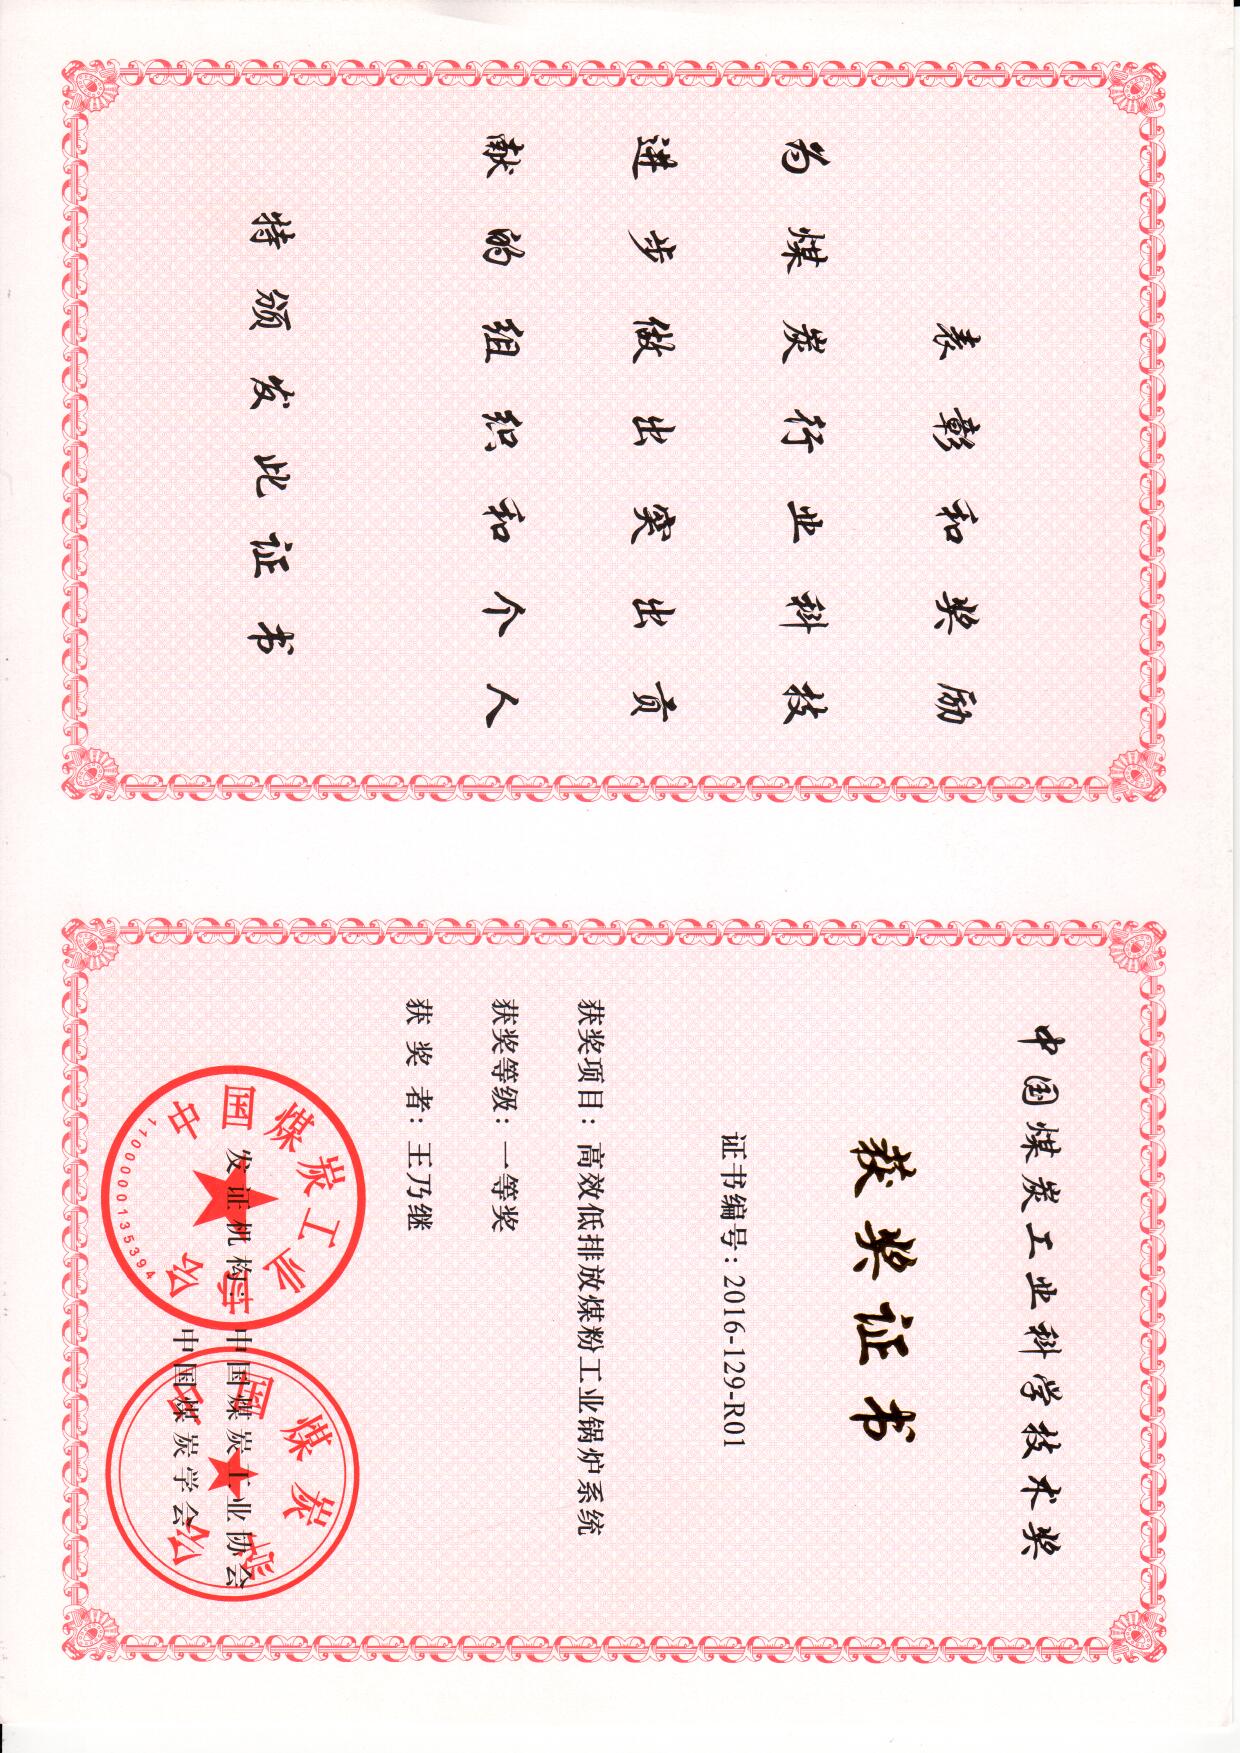 表彰和奖励
为煤炭行业科技
进步做出突出贡
献的组织和个人
特颁发此证书
中国煤炭工业科学技术奖
获奖证书
证书编号：2016-129-R01
获奖项目：高效低排放煤粉工业锅炉系统
获奖等级：一等奖
获奖者：王乃继
发证机构：中国煤炭工业协会
中国煤炭学会
中国煤炭工业协会
1100000135394
中国煤炭学会